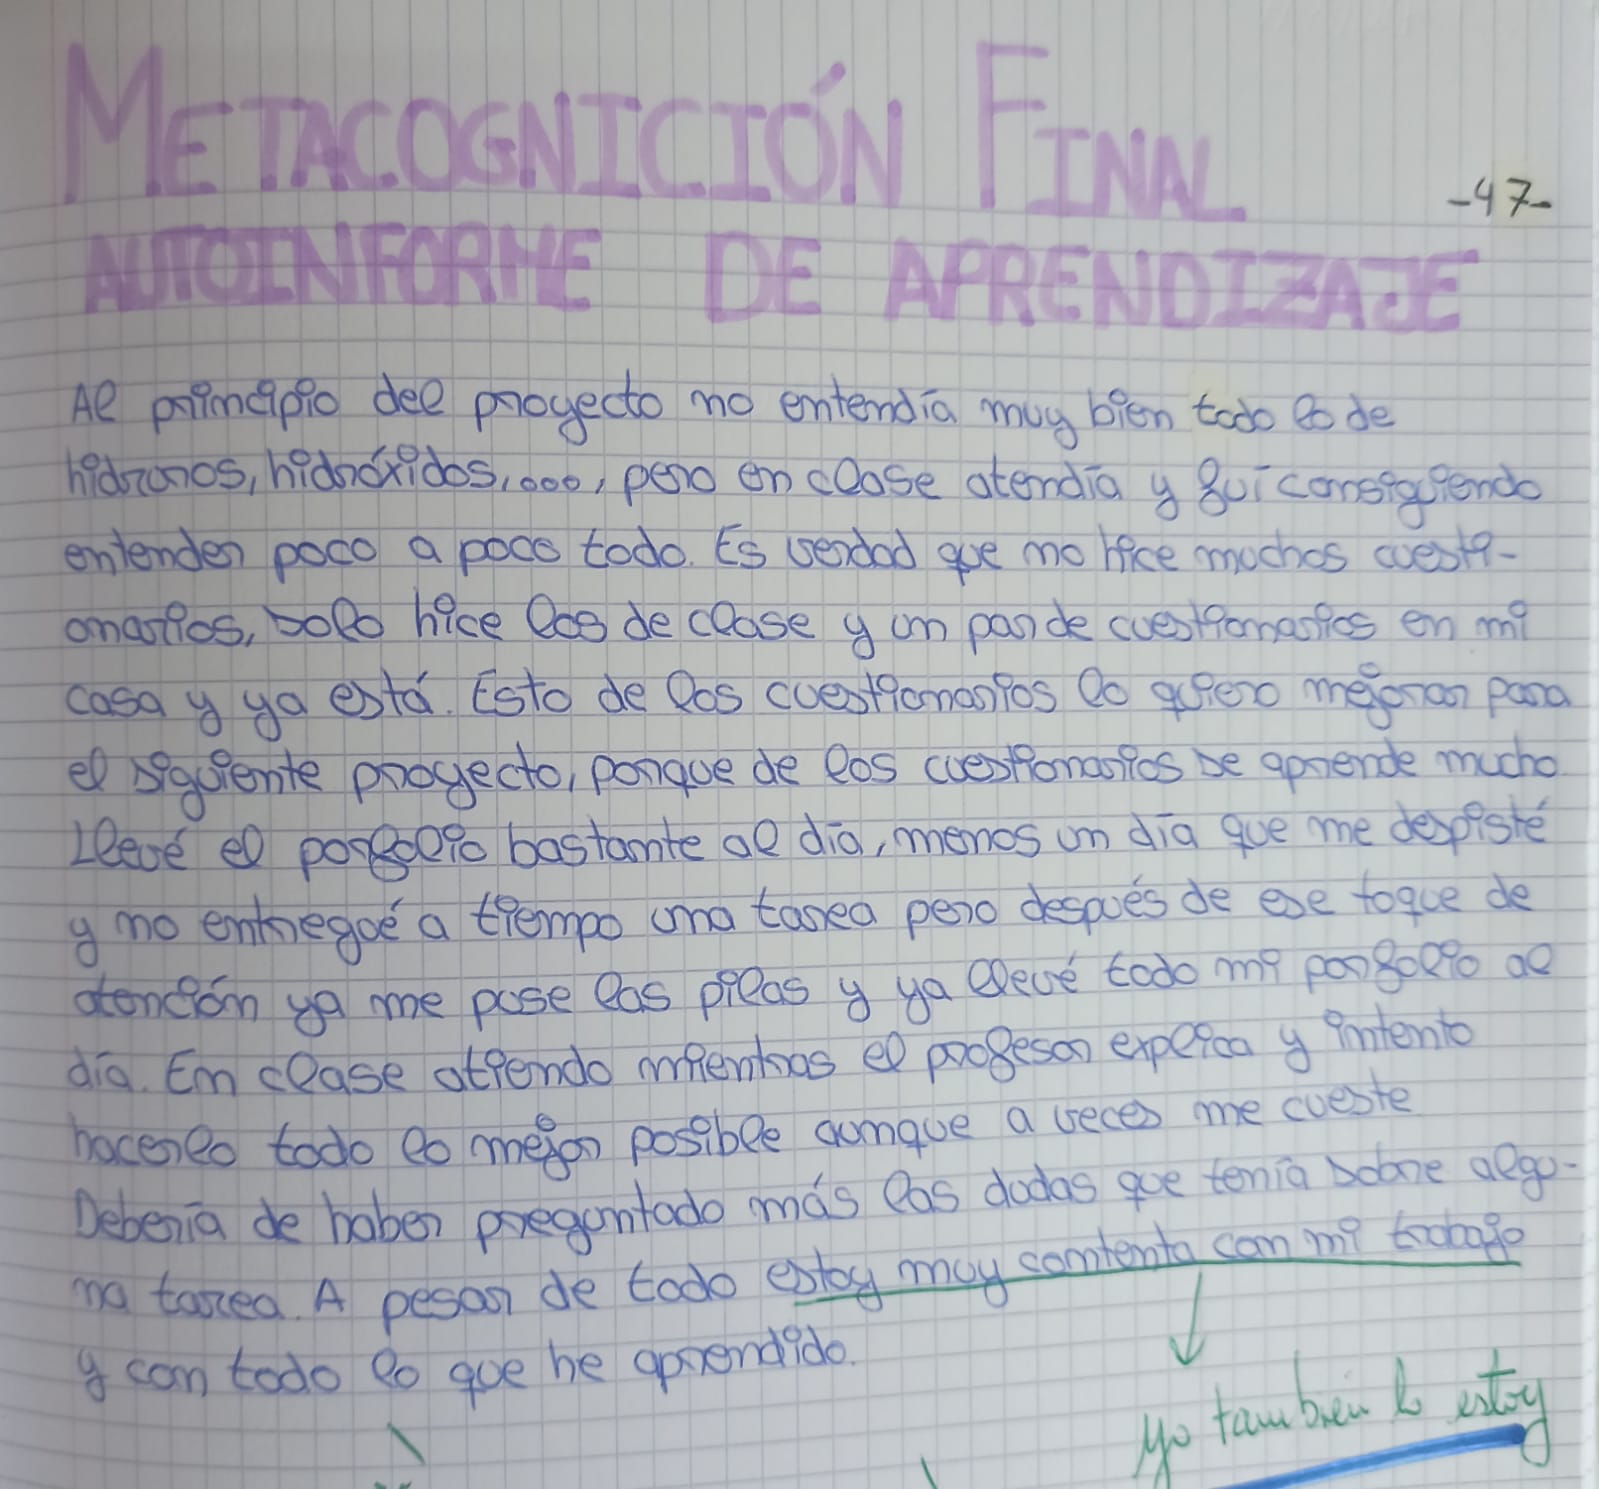 METACOGNICIÓN FINAL
-47-
AUTOINFORME DE APRENDIZAJE
Al principio del proyecto no entendía muy bien todo lo de
hidruros, hidróxidos,..., pero en clase atendía y fui consiguiendo
entender poco a poco todo. Es verdad que no hice muchos cuesti-
onarios, solo hice los de clase y un par de cuestionarios en mi
casa y ya está. Esto de los cuestionarios lo quiero mejorar para
el siguiente proyecto, porque de los cuestionarios se aprende mucho
Llevé el porfolio bastante al día, menos un día que me despisté
y no entregué a tiempo una tarea pero después de ese toque de
atención ya me puse las pilas y ya llevé todo mi porfolio al
día. En clase atiendo mientras el profesor explica y intento
hacerlo todo lo mejor posible aunque a veces me cueste
Debería de haber preguntado más las dudas que tenía sobre algu-
na tarea. A pesar de todo estoy muy contenta con mi trabajo
y con todo lo que he aprendido.
yo también lo estoy